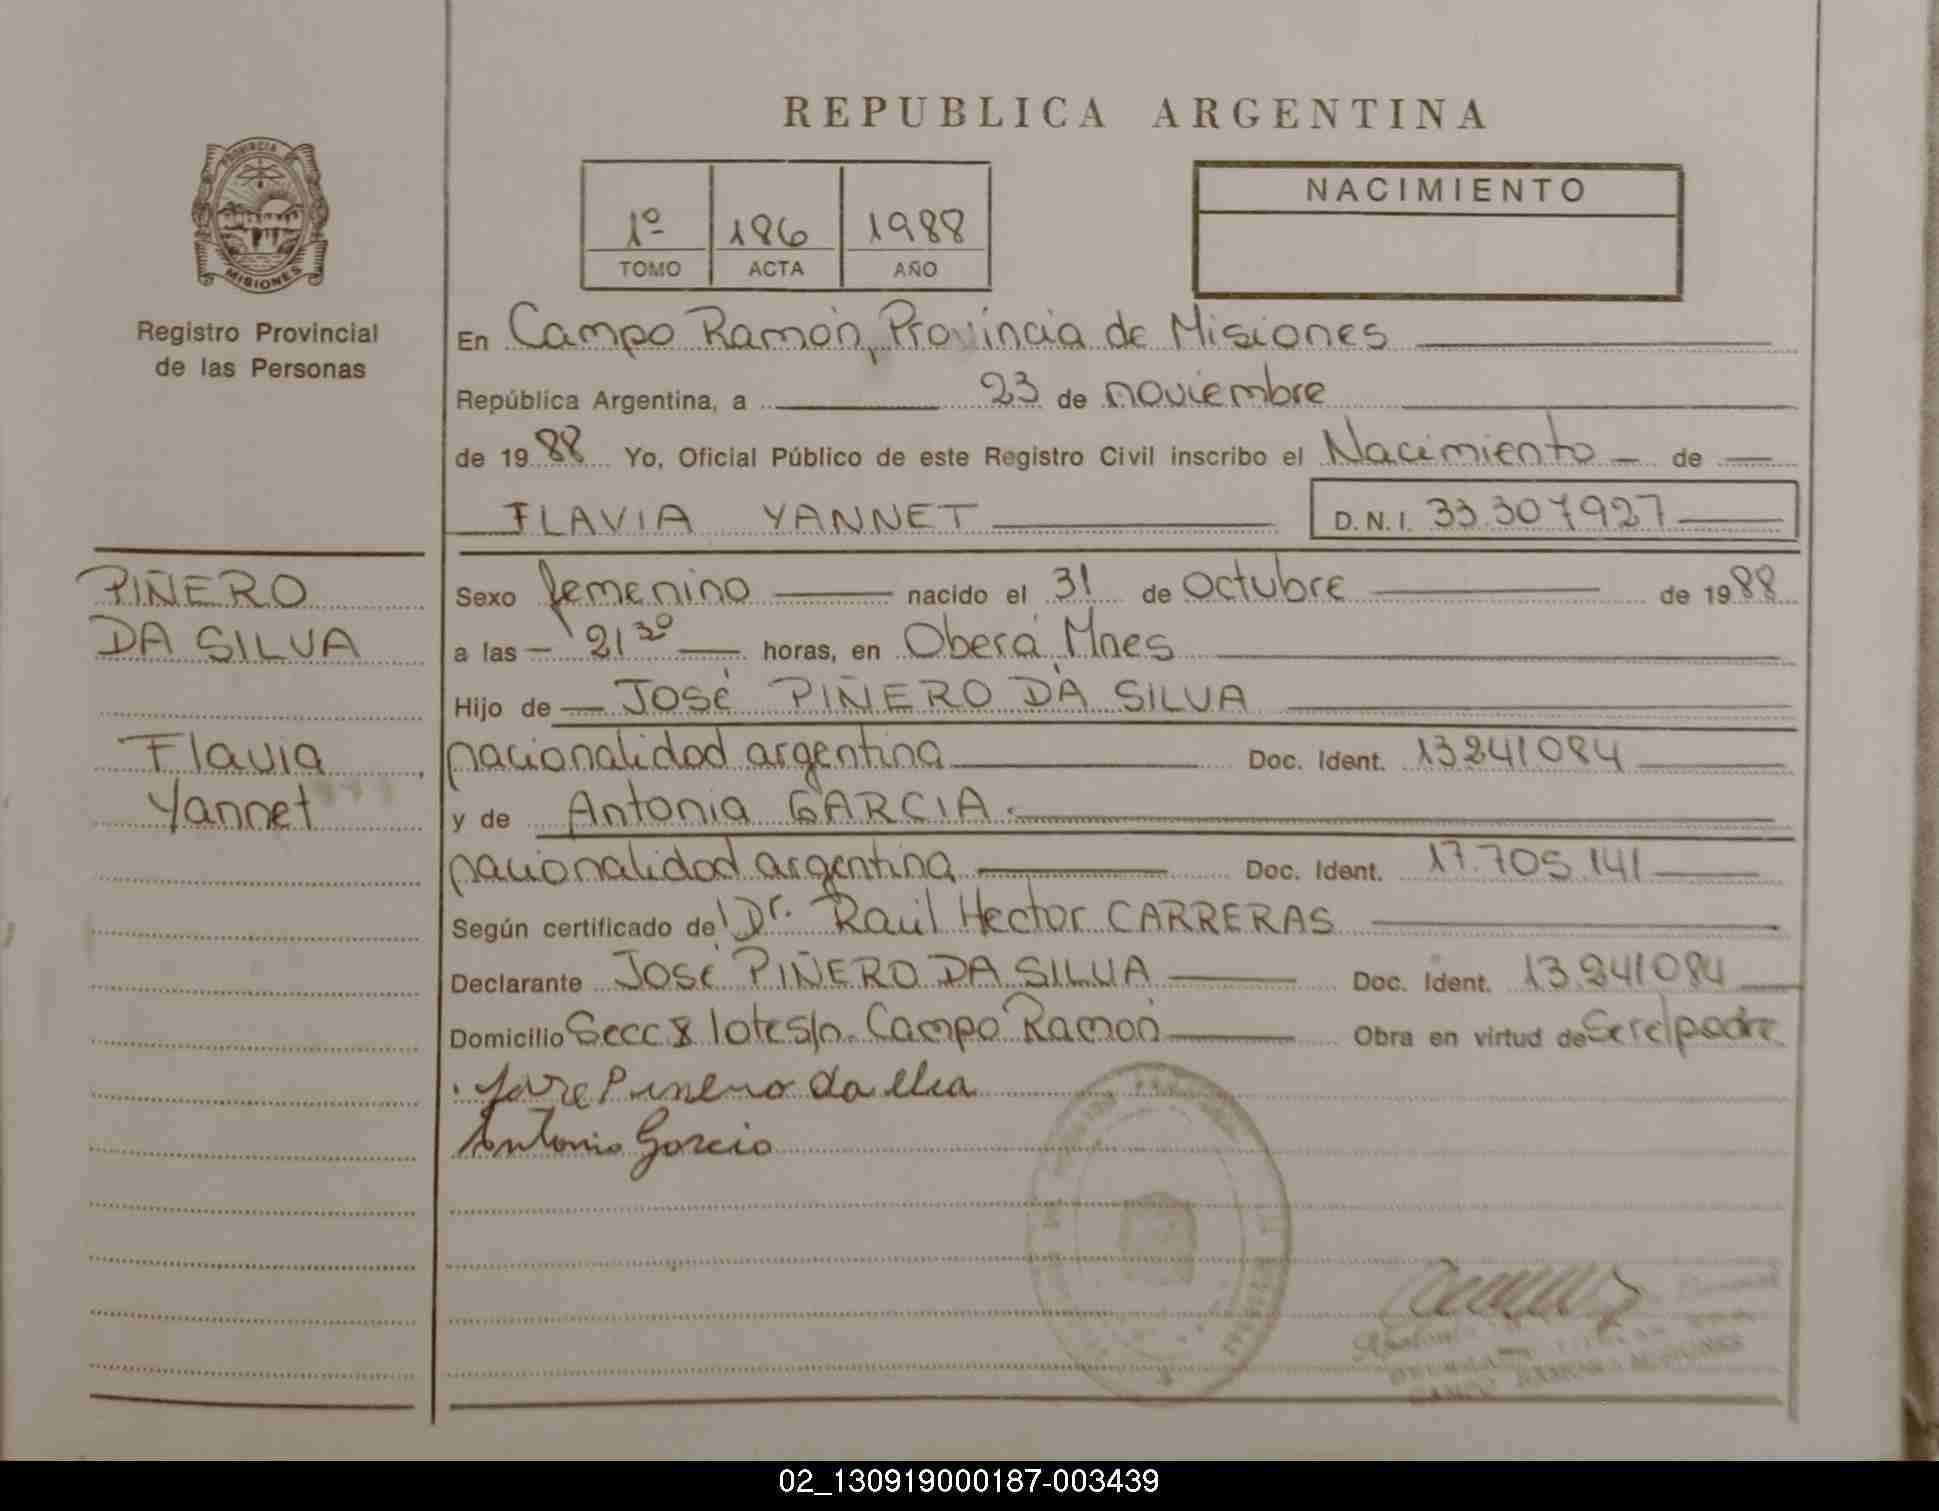 REPUBLICA ARGENTINA
PROVINCIA DE
MISIONES
Registro Provincial
de las Personas
1º 186 1988
TOMO ACTA AÑO
NACIMIENTO
En Campo Ramón, Provincia de Misiones
República Argentina, a 23 de noviembre
de 1988 Yo, Oficial Público de este Registro Civil inscribo el Nacimiento de
FLAVIA YANNET D.N.I. 33.307927
PIÑERO
DA SILVA
Flavia
Yannet
Sexo femenino nacido el 31 de Octubre de 1988
a las 21 30 horas, en Oberá, Mnes
Hijo de José PIÑERO DA SILVA
nacionalidad argentina Doc. Ident. 13241084
y de Antonia GARCIA.
nacionalidad argentina Doc. Ident. 17.705.141
Según certificado de Dr. Raúl Hector CARRERAS
Declarante José PIÑERO DA SILVA Doc. Ident. 13.241084
Domicilio Secc 8 lote s/n. Campo Ramón Obra en virtud de Ser el padre
Antonia Garcia
02_130919000187-003439